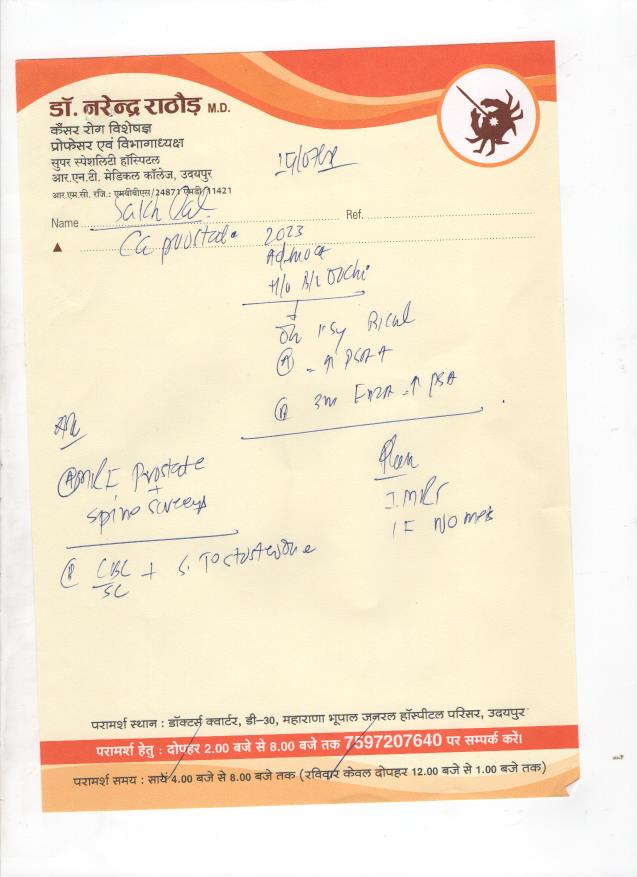 डॉ. नरेन्द्र राठौड़ M.D.
कैंसर रोग विशेषज्ञ
प्रोफेसर एवं विभागाध्यक्ष
सुपर स्पेशलिटी हॉस्पिटल
आर.एन.टी. मेडिकल कॉलेज, उदयपुर
आर.एम.सी. रजि.: एमबीबीएस/24871 एमडी/11421
Name Ref.
Ca prostate 2023
H/O B/L Orchi
1 1/2 Bical
↑ PSA
3m Enza = ↑ PSA
MRI Prostate
+
spine screen
Plan
MRI
IF NO mets
CBC + S. Testosterone
परामर्श स्थान : डॉक्टर्स क्वार्टर, डी–30, महाराणा भूपाल जनरल हॉस्पीटल परिसर, उदयपुर
परामर्श हेतु : दोपहर 2.00 बजे से 8.00 बजे तक 7597207640 पर सम्पर्क करें।
परामर्श समय : सायं 4.00 बजे से 8.00 बजे तक (रविवार केवल दोपहर 12.00 बजे से 1.00 बजे तक)